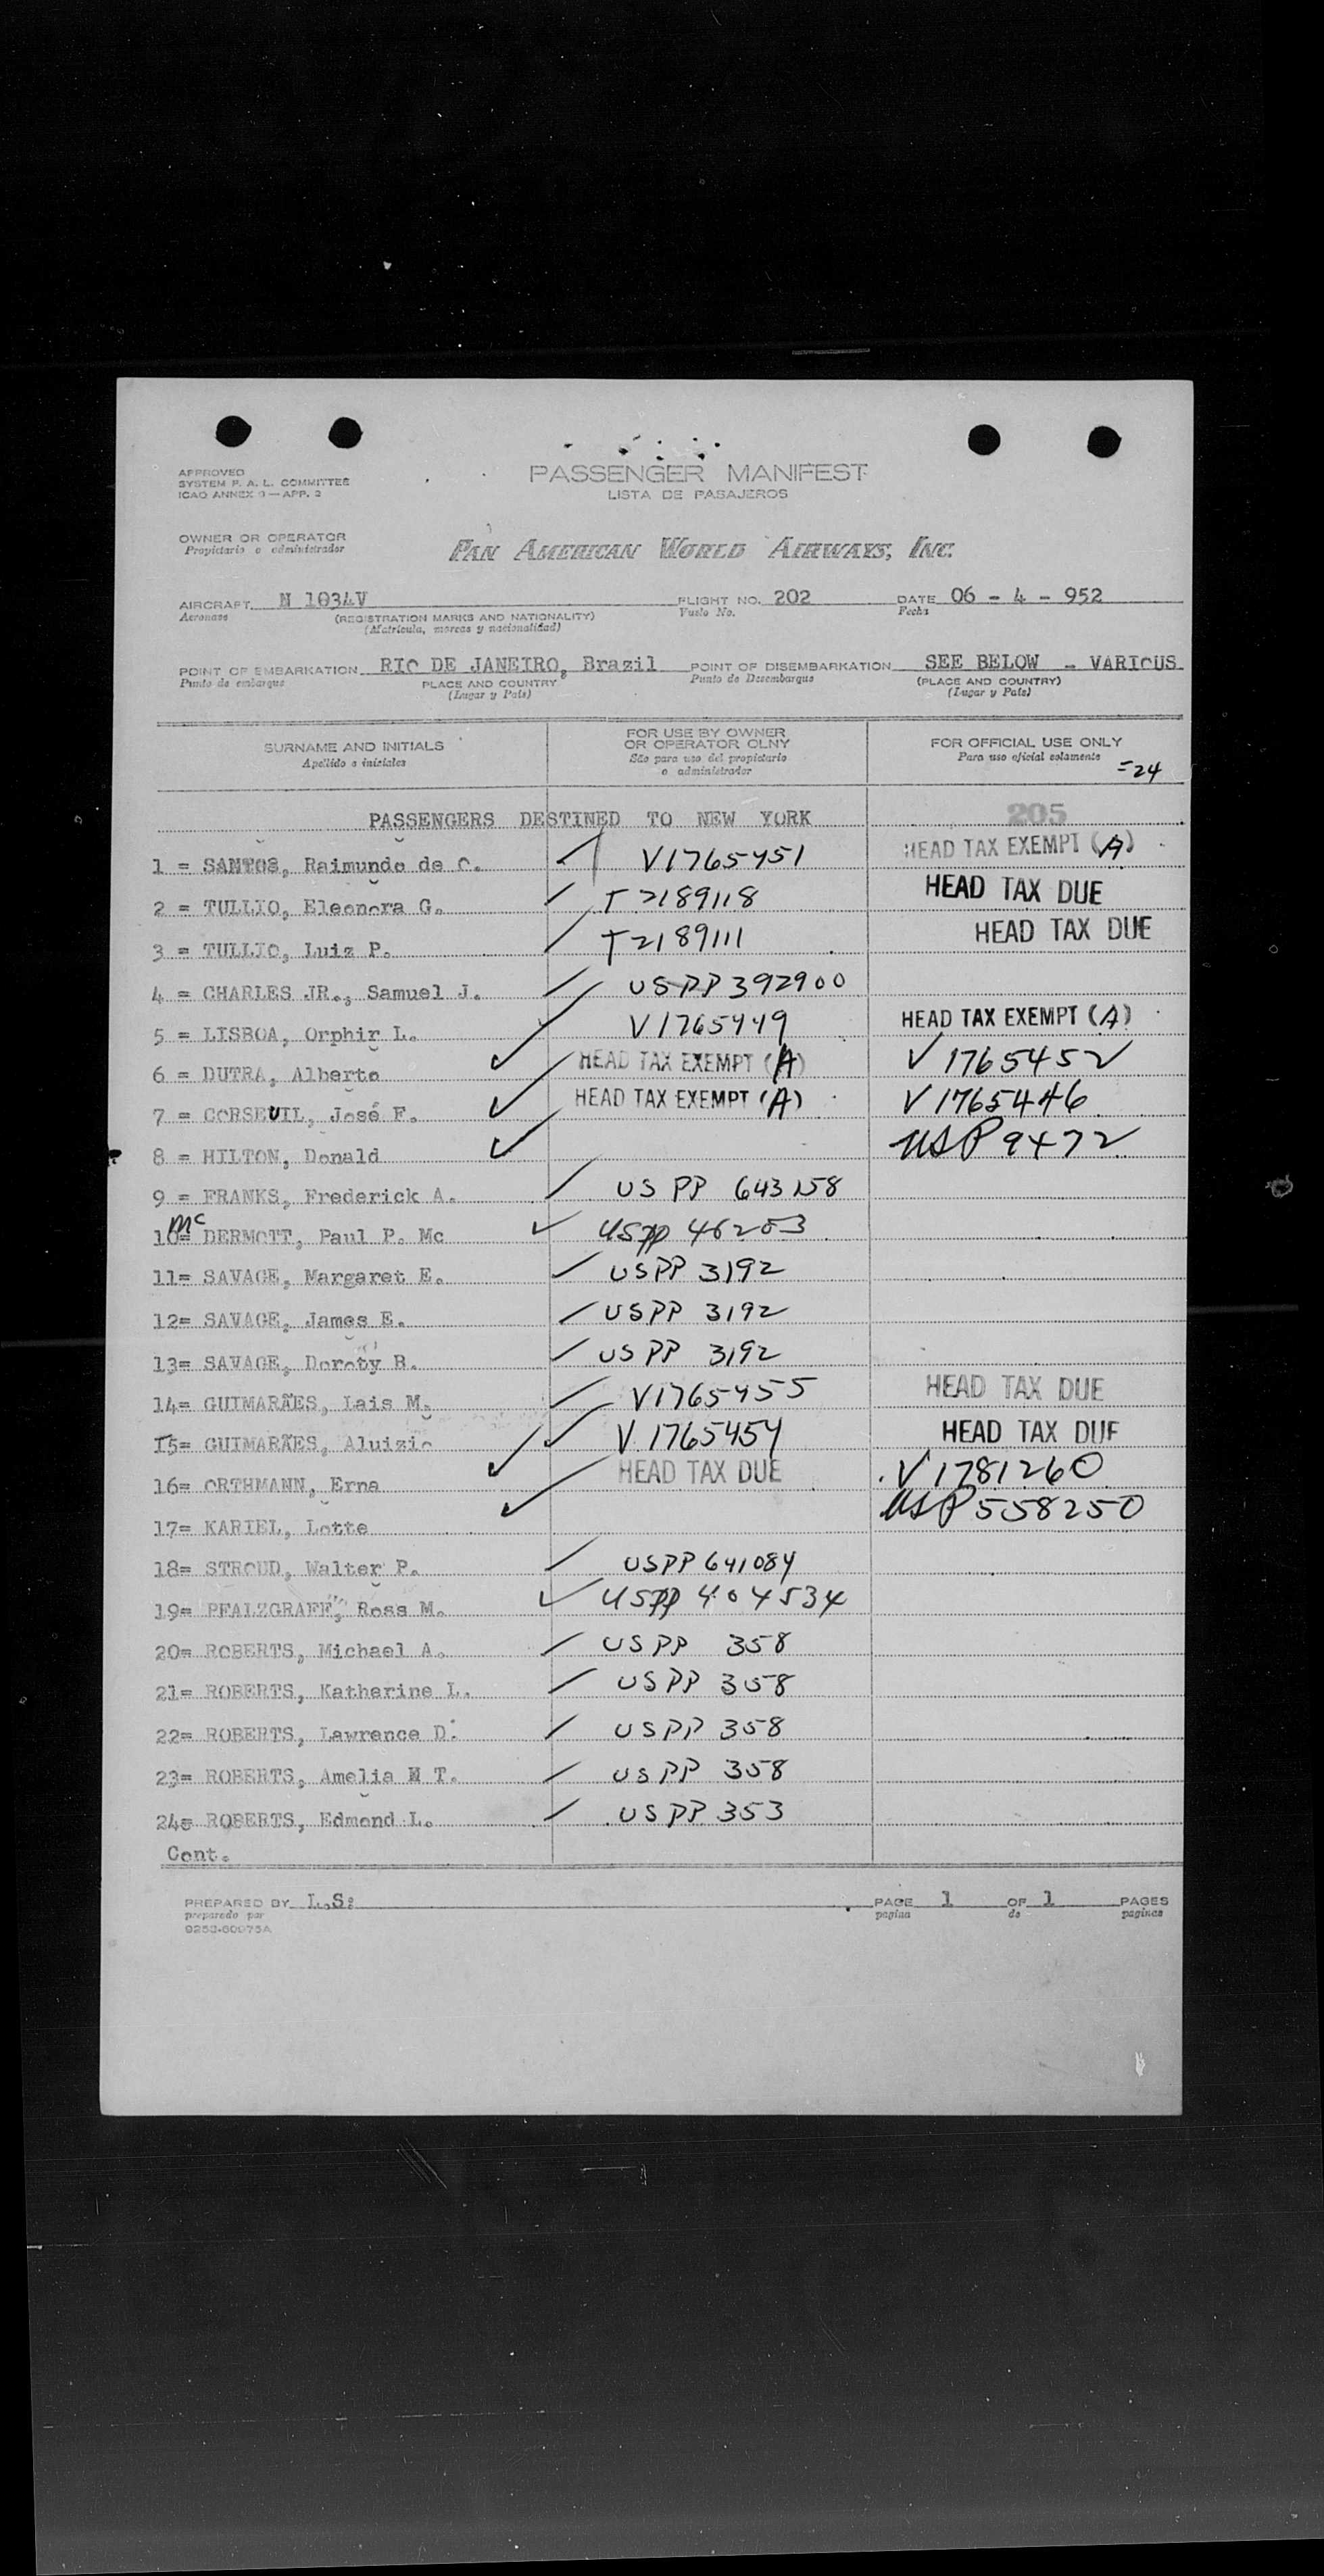 APPROVED
SYSTEM F. A. L. COMMITTEE
ICAO ANNEX 9 — APP. 2
PASSENGER MANIFEST
LISTA DE PASAJEROS
OWNER OR OPERATOR
Propietario o administrador
PAN AMERICAN WORLD AIRWAYS, INC.
AIRCRAFT N 1034V FLIGHT NO. 202 DATE 06 - 4 - 952
Aeronave (REGISTRATION MARKS AND NATIONALITY) Vuelo No. Fecha
(Matrícula, marcas y nacionalidad)
POINT OF EMBARKATION RIO DE JANEIRO, Brazil POINT OF DISEMBARKATION SEE BELOW - VARIOUS
Punto de embarque PLACE AND COUNTRY Punto de Desembarque (PLACE AND COUNTRY)
(Lugar y País) (Lugar y País)
SURNAME AND INITIALS FOR USE BY OWNER OR OPERATOR OLNY FOR OFFICIAL USE ONLY
Apellido e iniciales São para uso del propietario o administrador Para uso oficial solamente
=24
PASSENGERS DESTINED TO NEW YORK 205
1 = SANTOS, Raimundo de C. V1765451 HEAD TAX EXEMPT (A)
2 = TULLIO, Eleonora G. T 2189118 HEAD TAX DUE
3 = TULLIO, Luiz P. T 2189111 HEAD TAX DUE
4 = CHARLES JR., Samuel J. USPP 392900
5 = LISBOA, Orphir L. V1765449 HEAD TAX EXEMPT (A)
6 = DUTRA, Alberto HEAD TAX EXEMPT (A) V1765452
7 = CORSEUIL, José F. HEAD TAX EXEMPT (A) V1765446
8 = HILTON, Donald USP 9472
9 = FRANKS, Frederick A. US PP 643158
Mc
10= DERMOTT, Paul P. Mc USPP 46203
11= SAVAGE, Margaret E. USPP 3192
12= SAVAGE, James E. USPP 3192
13= SAVAGE, Doroty B. USPP 3192
14= GUIMARÃES, Lais M. V1765455 HEAD TAX DUE
15= GUIMARÃES, Aluizio V1765454 HEAD TAX DUE
16= ORTHMANN, Erna HEAD TAX DUE V1781260
17= KARIEL, Lotte USP 558250
18= STROUD, Walter P. USPP 641084
19= PFALZGRAFF, Ross M. USPP 404534
20= ROBERTS, Michael A. USPP 358
21= ROBERTS, Katherine L. USPP 358
22= ROBERTS, Lawrence D. USPP 358
23= ROBERTS, Amelia M T. USPP 358
24= ROBERTS, Edmond L. USPP 353
Cont.
PREPARED BY L.S: PAGE 1 OF 1 PAGES
preparado por pagina de paginas